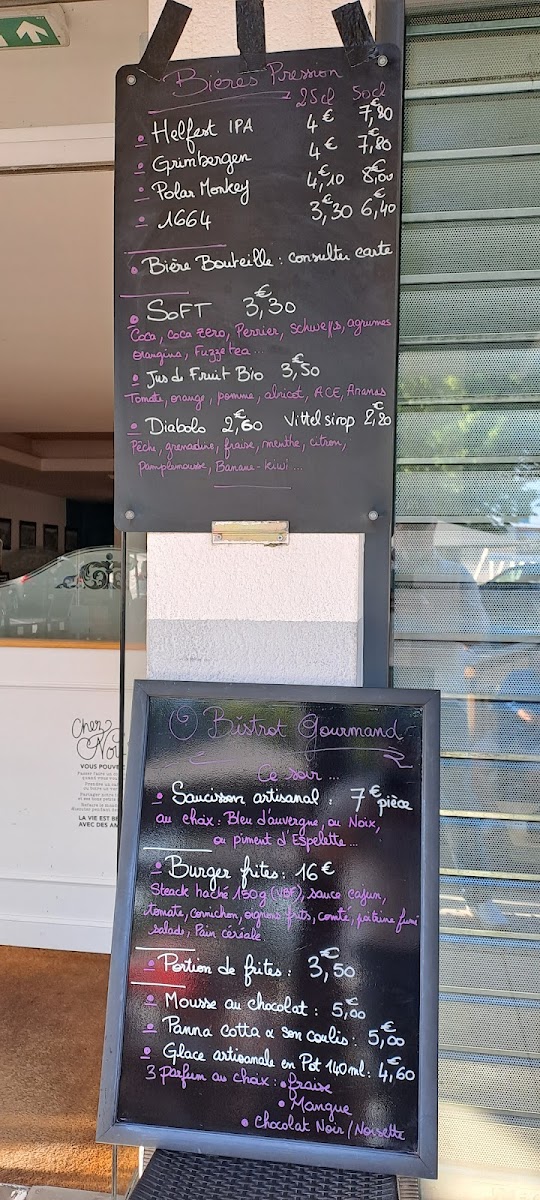 Bières Pression
25cl 50cl
Helfest IPA 4€ 7€,80
Grimbergen 4€ 7€,80
Polar Monkey 4€,10 8€,00
1664 3€,30 6€,40
Bière Bouteille : consulter carte
SOFT 3€,30
Coca, coca zero, Perrier, schweps, agrumes
orangina, Fuzze tea ...
Jus de Fruit Bio 3€,50
Tomate, orange, pomme, abricot, ACE, Ananas
Diabolo 2€,60 Vittel sirop 2€,80
Pêche, grenadine, fraise, menthe, citron,
Pamplemousse, Banane-kiwi ....
Bistrot Gourmand
Ce soir ...
Saucisson artisanal : 7€ pièce
au choix : Bleu d'auvergne, ou Noix,
ou piment d'Espelette ...
Burger frites : 16€
Steack haché 150g (VBF), sauce cajun,
tomate, cornichon, oignons frits, comté, poitrine fumé
salade, Pain céréale
Portion de frites : 3€,50
Mousse au chocolat : 5€,00
Panna cotta & son coulis : 5€,00
Glace artisanale en Pot 140ml : 4€,60
3 parfum au choix : • fraise
• Mangue
• chocolat Noir / Noisette
Chez
VOUS POUVE
LA VIE EST BE
AVEC DES AM